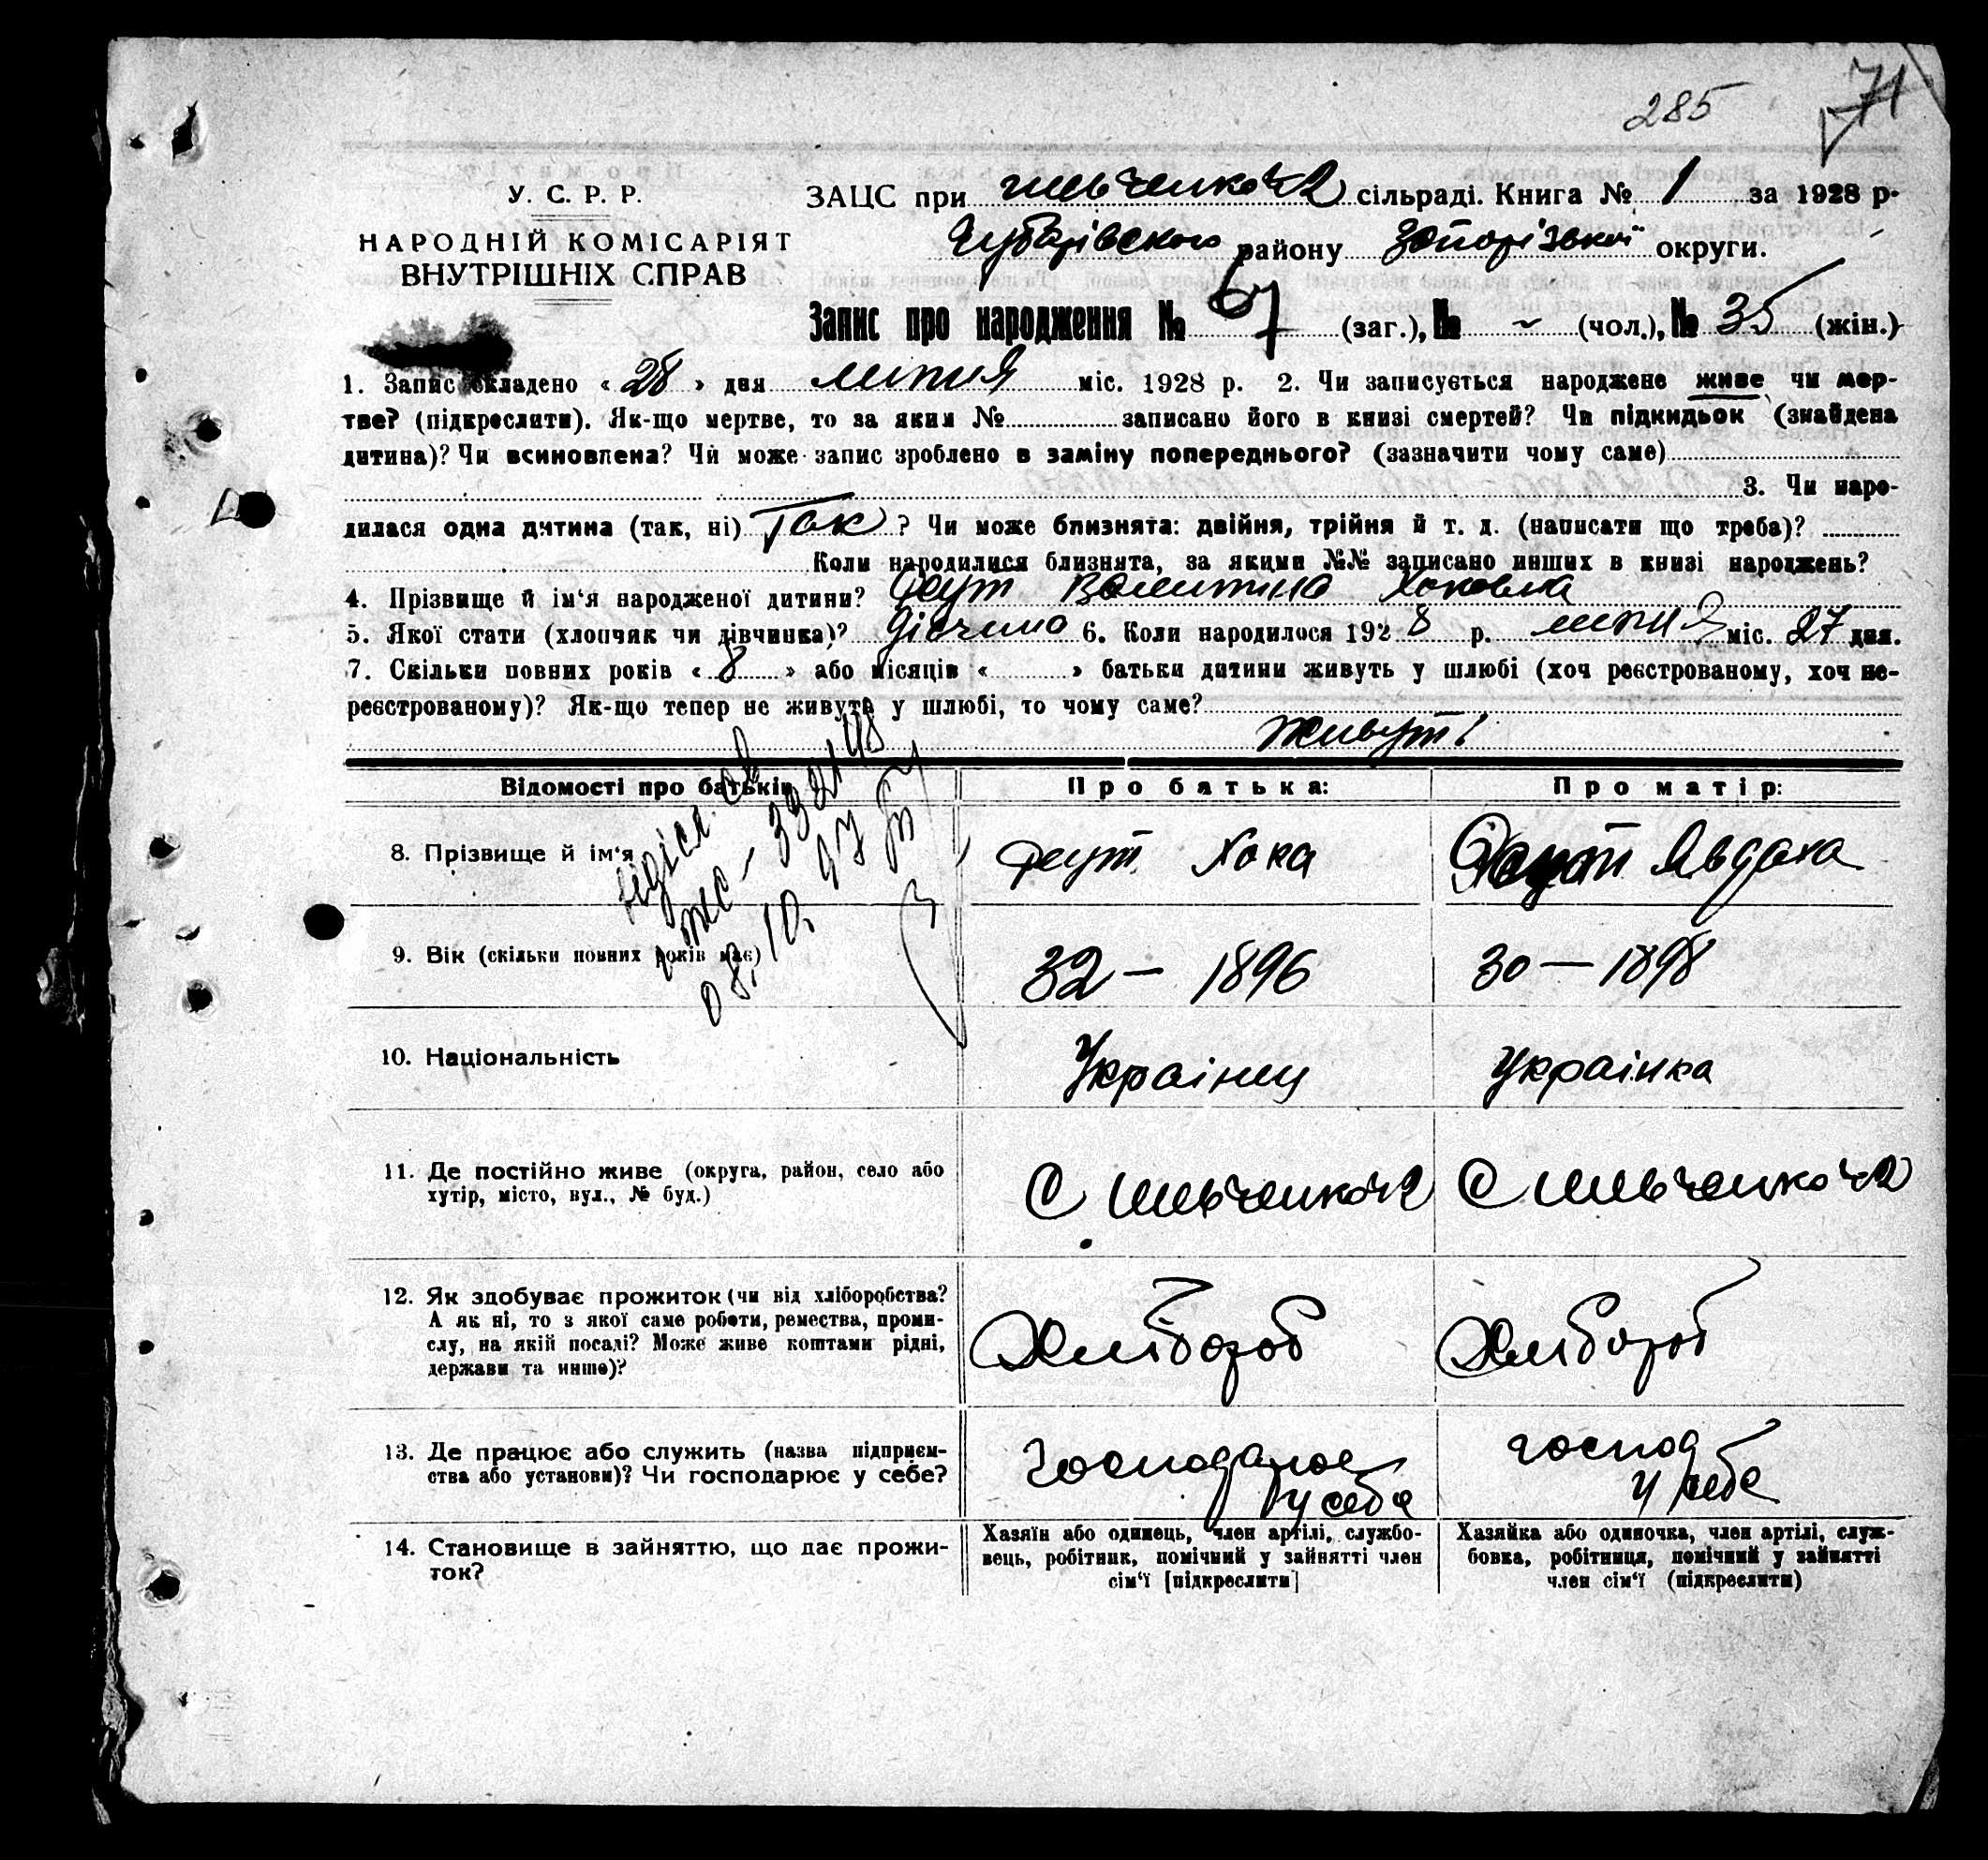 285 71
У. С. Р. Р.
НАРОДНІЙ КОМІСАРІЯТ
ВНУТРІШНІХ СПРАВ
ЗАЦС при Шевченков2 сільраді. Книга № 1 за 1928 р.
Чубарівського району Запорізької округи.
Запис про народження № 67 (заг.), № ~ (чол.), № 35 (жін.)
1. Запис складено « 28 » дня липня міс. 1928 р. 2. Чи записується народжене живе чи мер-
тве? (підкреслити). Як-що мертве, то за яким № записано його в книзі смертей? Чи підкидьок (знайдена
дитина)? Чи всиновлена? Чи може запис зроблено в заміну попереднього? (зазначити чому саме)
3. Чи наро-
дилася одна дитина (так, ні) Так ? Чи може близнята: двійня, трійня й т. д. (написати що треба)?
Коли народилися близнята, за якими №№ записано инших в книзі народжень?
4. Прізвище й ім‘я народженої дитини? Реут
5. Якої стати (хлопчяк чи дівчинка)? дівчина 6. Коли народилося 1928 р. липня міс. 27 дня.
7. Скільки повних років « 8 » або місяців « » батьки дитини живуть у шлюбі (хоч реєстрованому, хоч не-
реєстрованому)? Як-що тепер не живуть у шлюбі, то чому саме?
живуть
Відомості про батьків Про батька: Про матір:
8. Прізвище й ім‘я Реут Хока Реут Явдоха
9. Вік (скільки повних років має) 32 — 1896 30 — 1898
08.10.97
10. Національність Українец Українка
11. Де постійно живе (округа, район, село або
хутір, місто, вул., № буд.) С. Шевченков2 С Шевченков2
12. Як здобуває прожиток (чи від хліборобства?
А як ні, то з якої саме роботи, ремества, проми-
слу, на якій посаді? Може живе коштами рідні,
держави та инше)? Хлібороб Хлібороб
13. Де працює або служить (назва підприєм-
ства або установи)? Чи господарює у себе? Господарює у себе господ у себе
14. Становище в зайняттю, що дає прожи-
ток?
Хазяїн або одинець, член артілі, службо-
вець, робітник, помічний у зайнятті член
сім‘ї [підкреслити]
Хазяйка або одиночка, член артілі, служ-
бовка, робітниця, помічний у зайнятті
член сім‘ї (підкреслити)